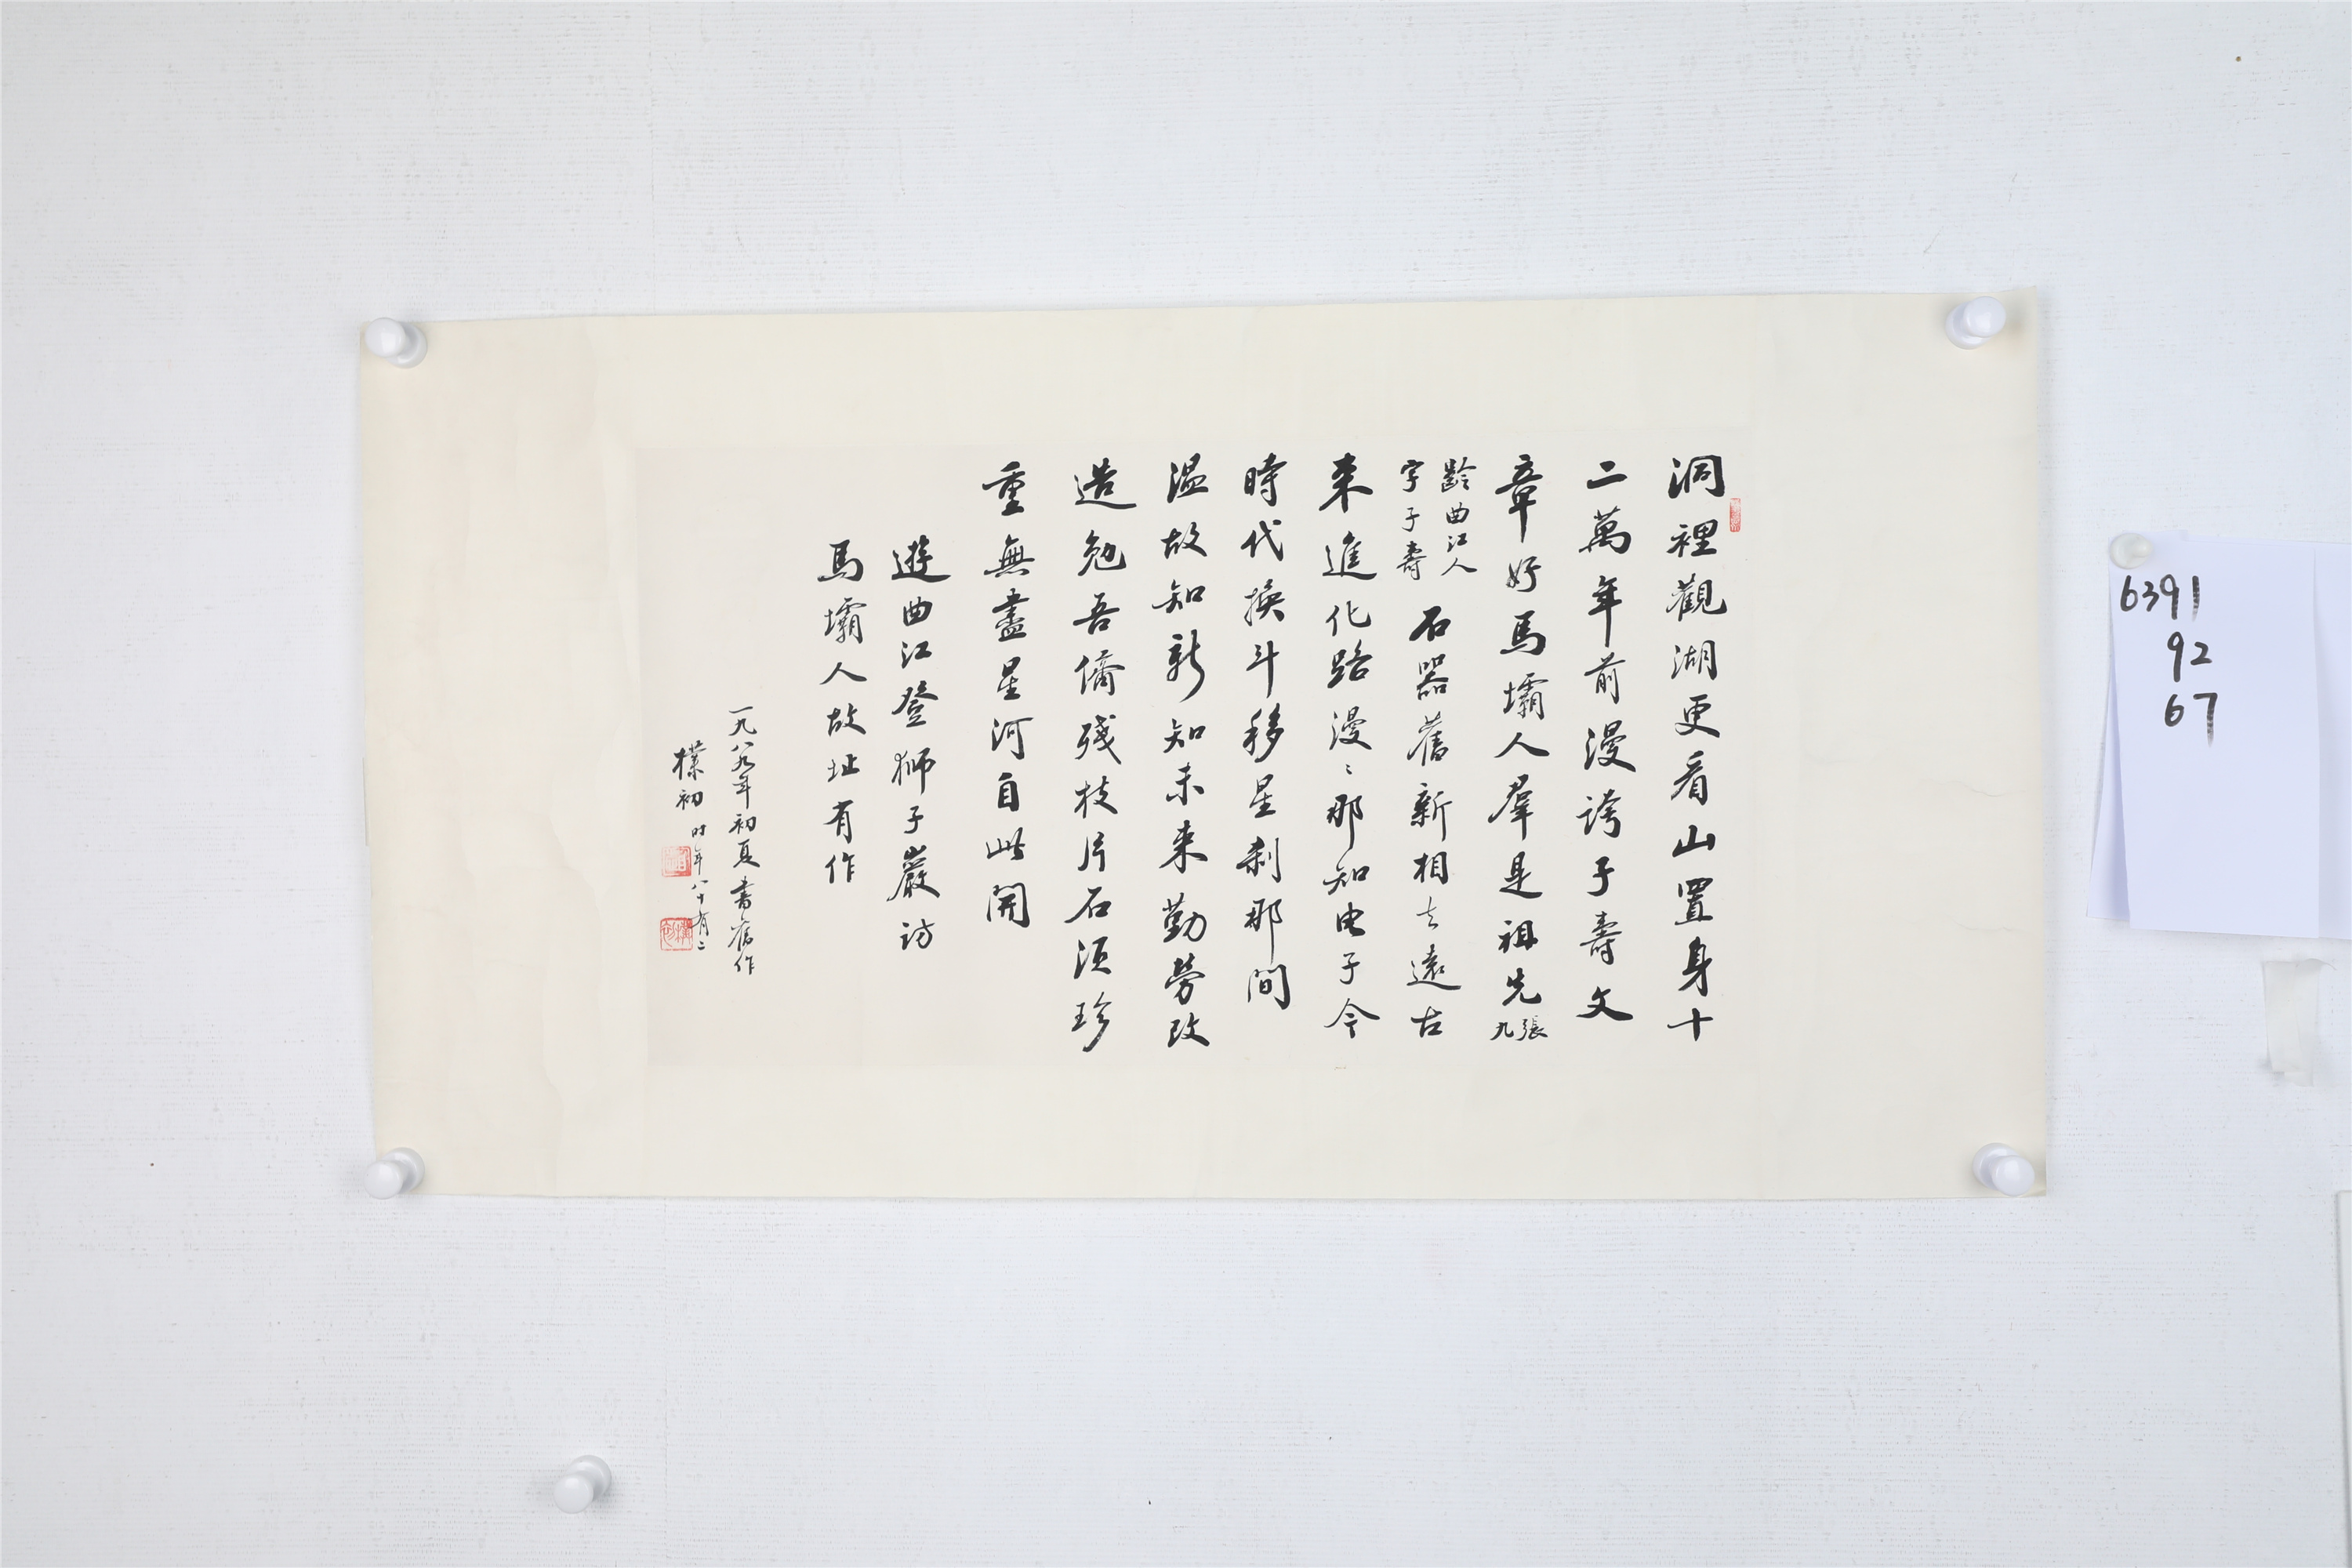 洞裡觀湖更看山置身十
二萬年前漫誇子壽文
章好馬壩人羣是祖先張九
齡曲江人
字子壽
石器舊新相去遠古
来進化路漫〻那知电子今
時代換斗移星刹那間
温故知新知未来勤勞改
造勉吾儕殘枝片石須珍
重無盡星河自此開
遊曲江登狮子巖访
馬壩人故址有作
一九八九年初夏書舊作
樸初时年八十有二
6391
92
67